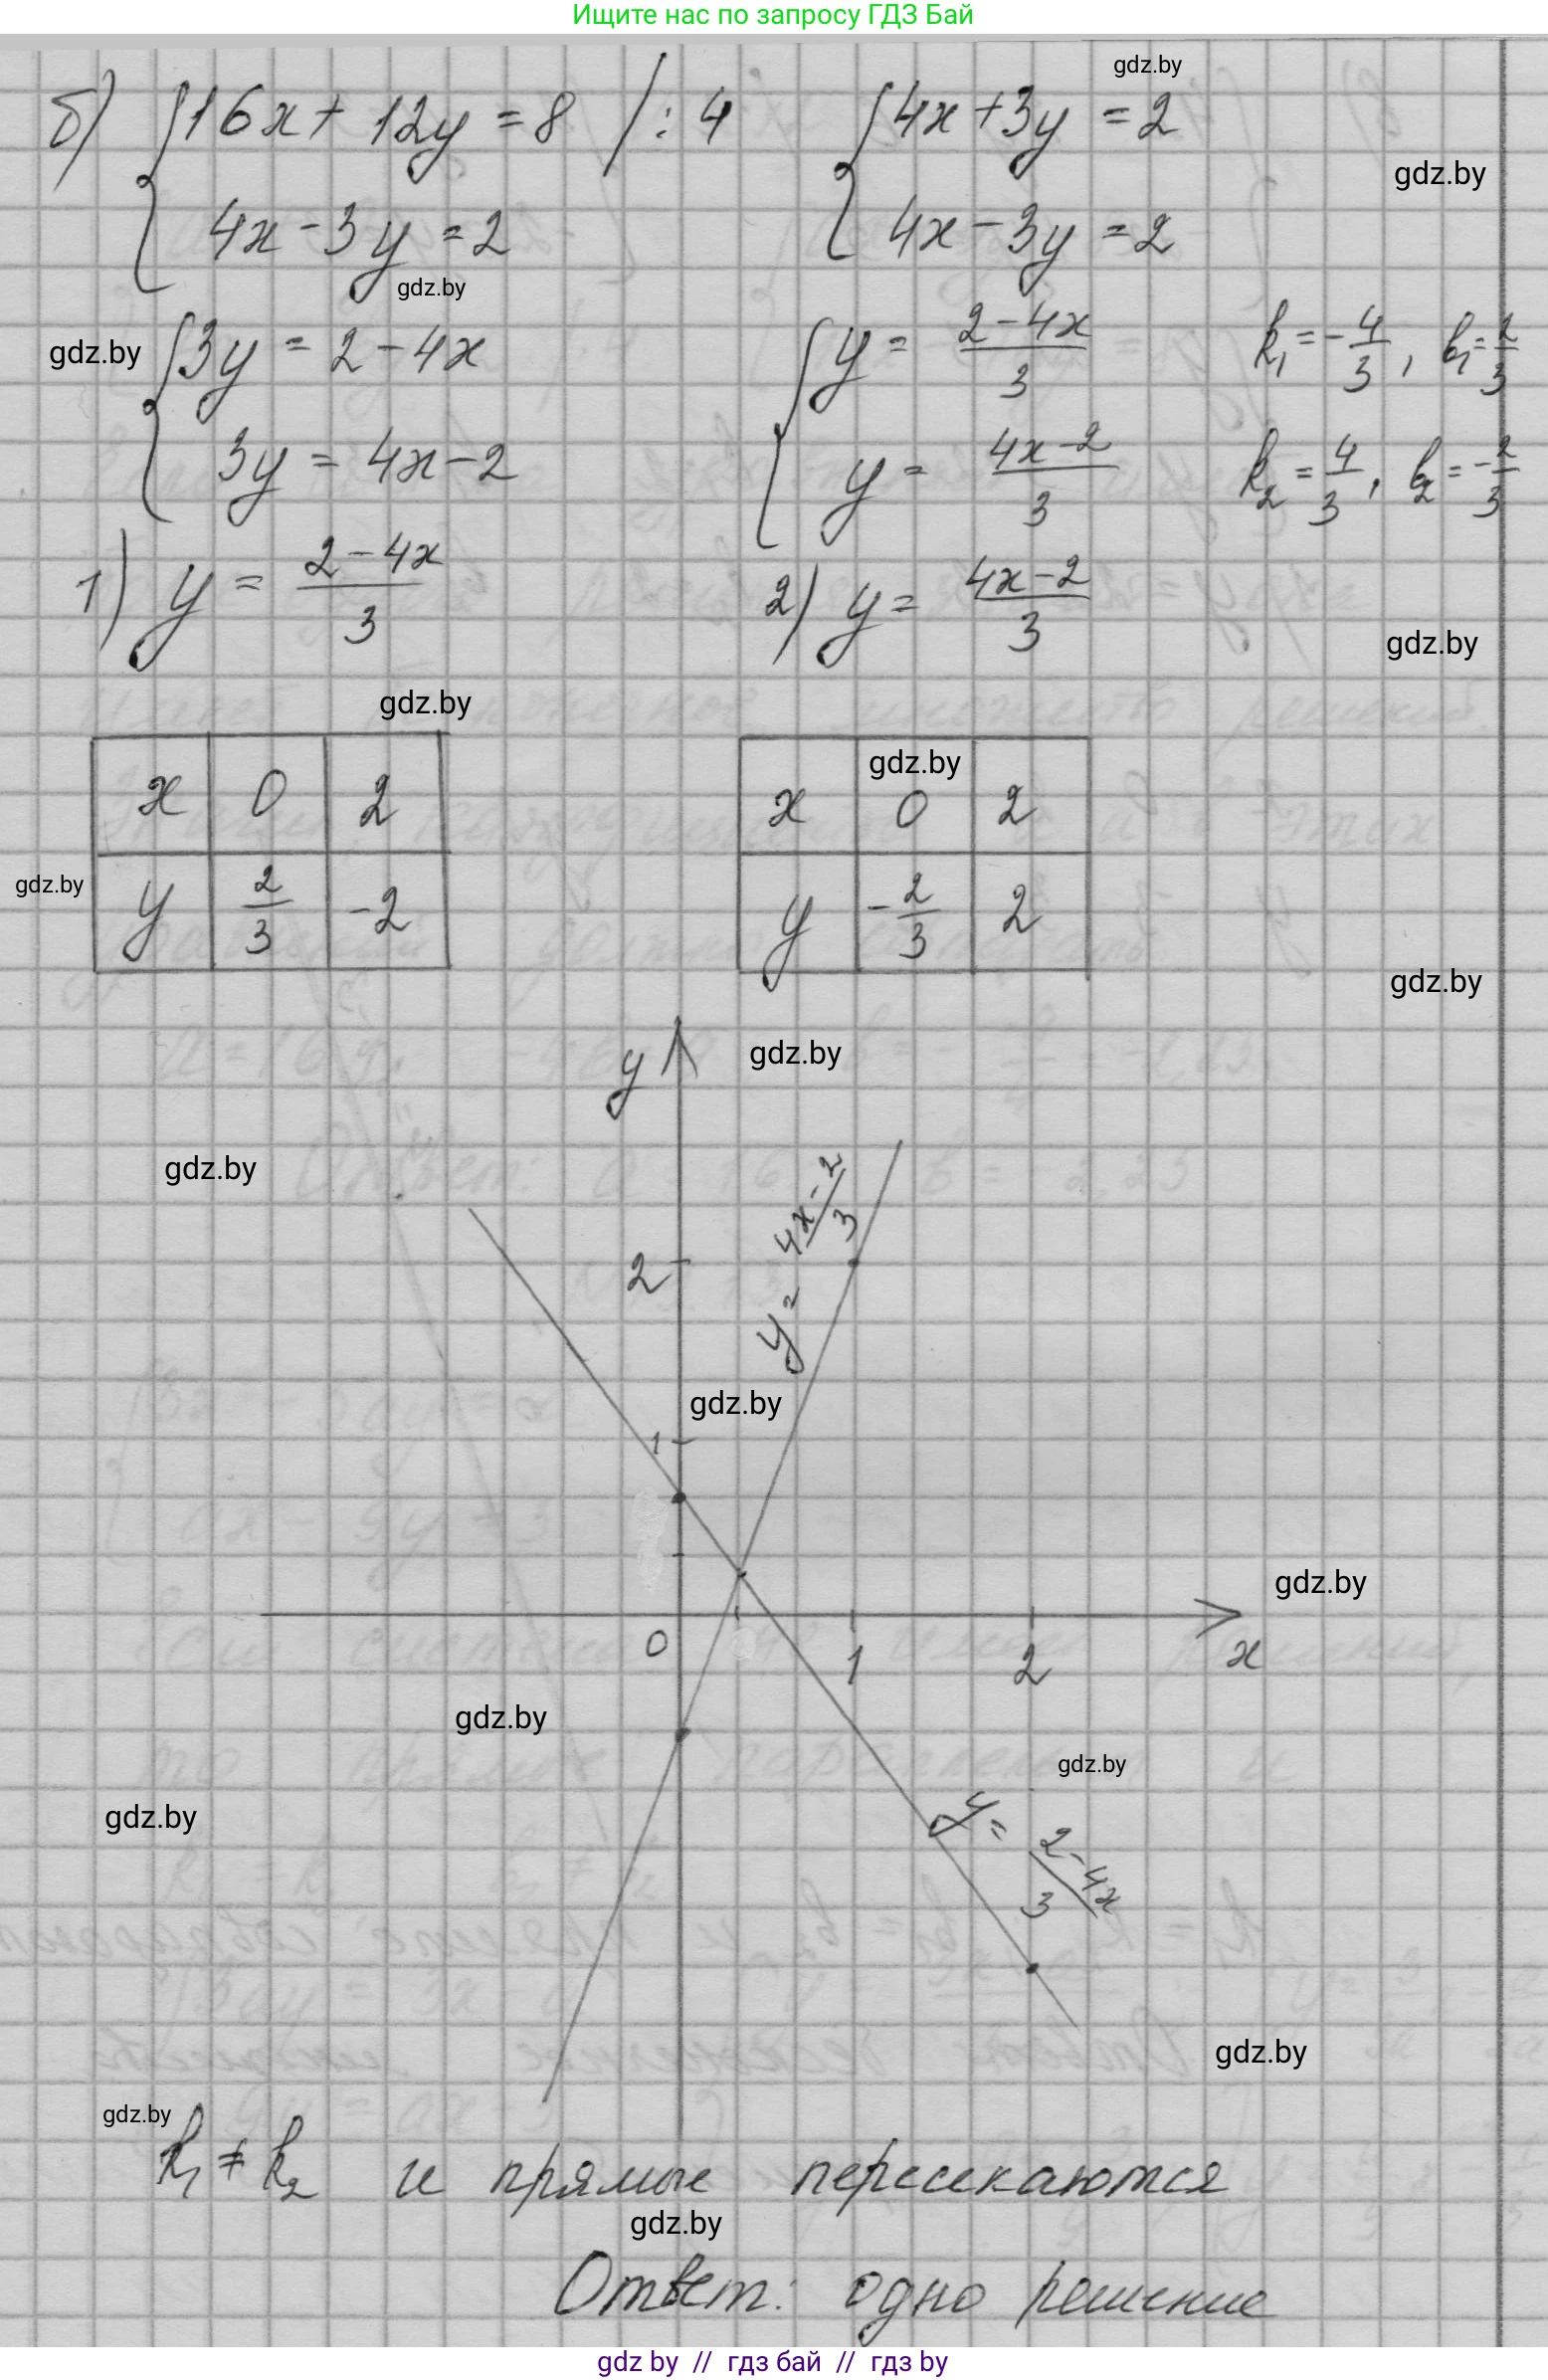 Ищите нас по запросу ГДЗ Бай
gdz.by
б) { 16x + 12y = 8 / : 4     { 4x + 3y = 2
gdz.by
4x - 3y = 2     4x - 3y = 2
gdz.by
gdz.by
{ 3y = 2 - 4x     { y = (2 - 4x)/3     k₁ = -4/3, b₁ = 2/3
3y = 4x - 2     y = (4x - 2)/3     k₂ = 4/3, b₂ = -2/3
1) y = (2 - 4x)/3     2) y = (4x - 2)/3
gdz.by
gdz.by
gdz.by
x 0 2     x 0 2
gdz.by
y 2/3 -2     y -2/3 2
gdz.by
y
gdz.by
gdz.by
y = (4x - 2)/3
2
gdz.by
1
gdz.by
0 1 2 x
gdz.by
gdz.by
gdz.by
y = (2 - 4x)/3
gdz.by
gdz.by
k₁ ≠ k₂ и прямые пересекаются
gdz.by
Ответ: одно решение
gdz by // гдз бай // гдз by